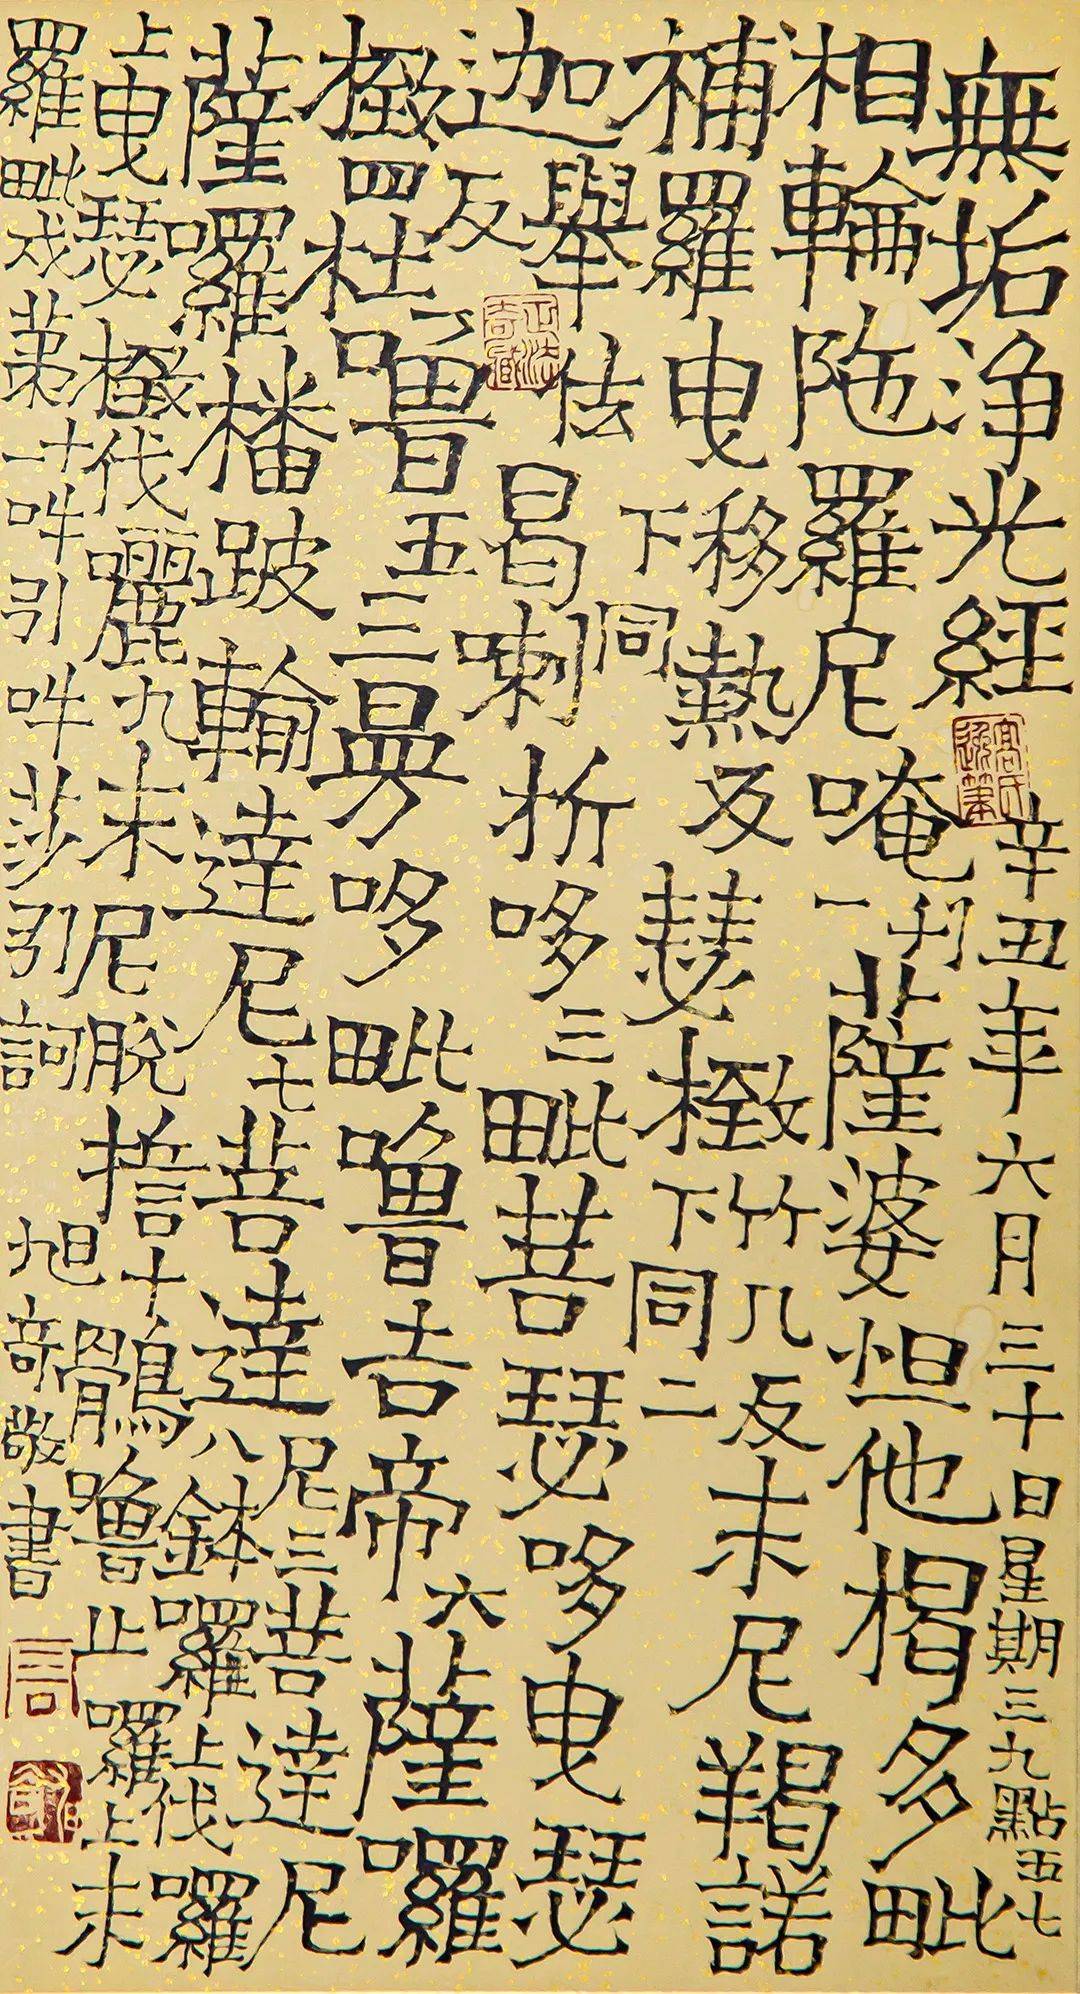 無垢净光經
辛丑年六月三十日星期三九點五七分
相輪陁羅尼唵一薩婆怛他楬多毗
補羅曳移熱反瑟㮹竹几反下同二末尼羯諾
迦舉佉曷喇折哆三毗菩瑟哆曳瑟
㮹四杜嚕五三曼哆毗嚕吉帝六薩囉
薩囉播跛輸達尼七菩達尼三菩達尼
上曳瑟㮹伐麗九末尼脫誓十鶻嚕止囉上末
羅毗戍苐十一吽引吽莎引訶
旭奇敬書